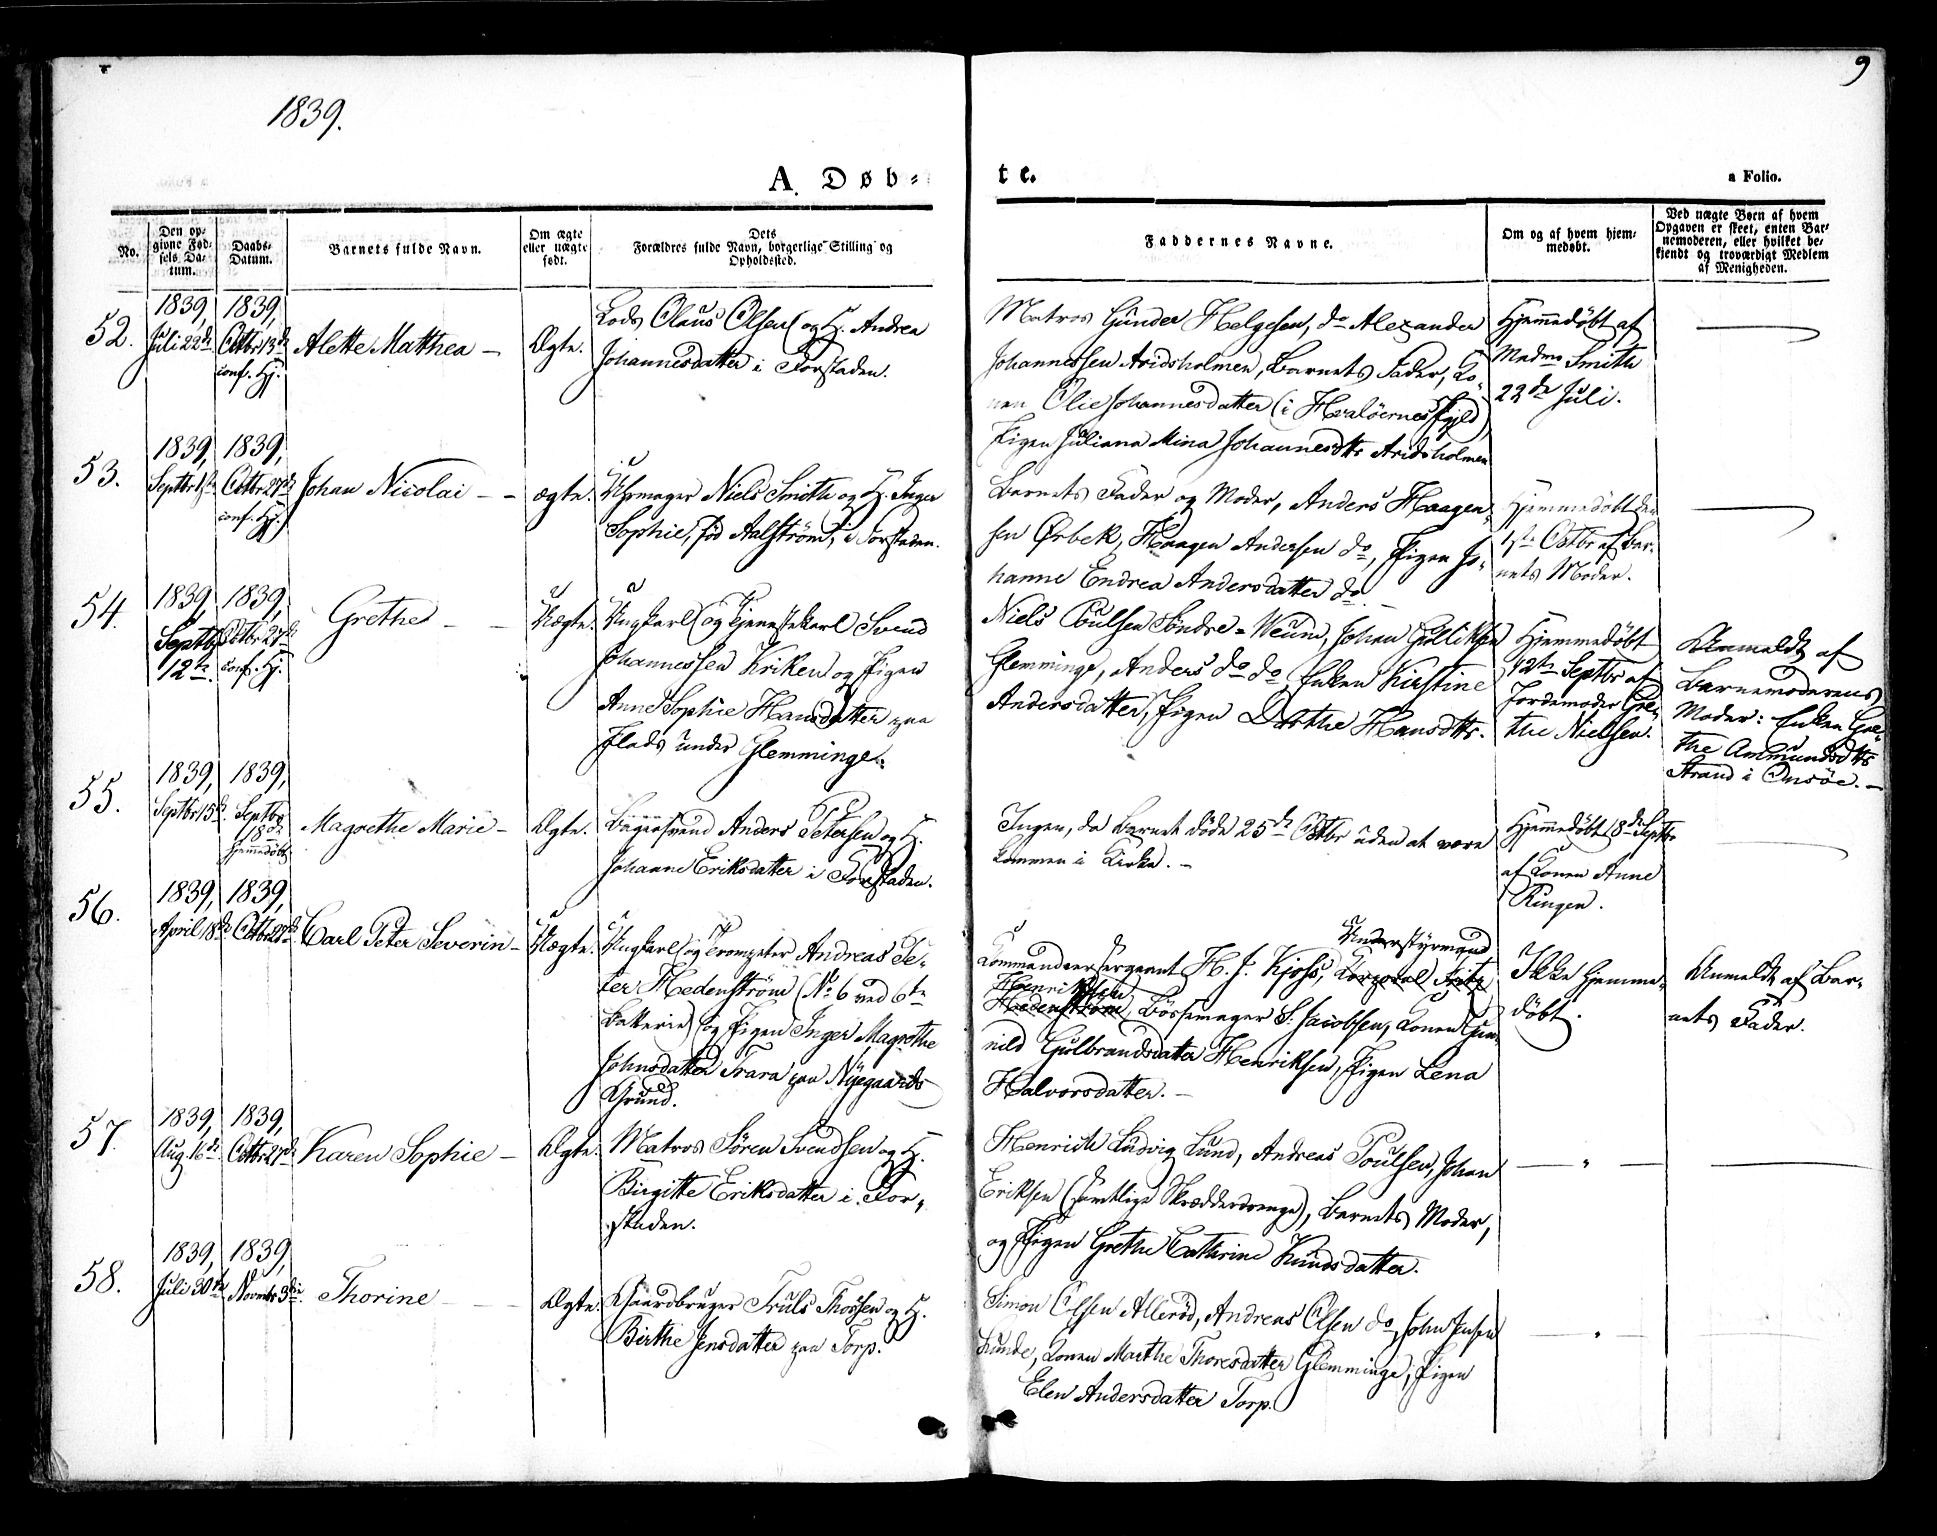 9
1839.
A. Døb=
te.
a Folio.
No.
Den op-
givne Fød-
sels Da-
tum.
Daabs-
Datum.
Barnets fulde Navn.
Om ægte
eller uægte
født.
Dets
Forældres fulde Navn, borgerlige Stilling og
Opholdssted.
Faddernes Navne.
Om og af hvem hjem-
medøbt.
Ved uægte Børn af hvem
Opgaven er skeet, enten Bar-
nemoderen, eller hvilket be-
kjendt og troværdigt Medlem
af Menigheden.
52.
1839,
Juli 22de
1839,
Octbr 13de
conf. Hj.
Alette Mathea –
Ægte.
Lods Olaus Olsen og H. Andrea
Johannesdatter i Forstaden.
Matros Gunder Helgesen, do Alexander
Johannessen Aridsholmen, Barnets Fader, Ko-
nen Olie Johannesdatter (i Hvaløernes Sgjld)
Pigen Juliana Mina Johannesdtr Aridsholmen
Hjemmedøbt af
Madme Smith
22de Juli.
53.
1839,
Septbr 1ste
1839,
Octbr 27de
conf. Hj.
Johan Nicolai – –
ægte.
Uhrmager Niels Smith og H. Inger
Sophie, fød Aalström, i Forstaden.
Barnets Fader og Moder, Anders Haagen-
sen Ørbek, Haagen Andersen do, Pigen Jo-
hanne Endrea Andersdatter do.
Hjemmedøbt den
1ste Octbr af Bar-
nets Moder.
54.
1839,
Septbr
12te
1839,
Octbr 27de
conf. Hj.
Grethe – –
Uægte.
Ungkarl og Tjenestekarl Svend
Johannessen Kriken og Pigen
Anne Sophie Hansdatter paa
Flads under Glemminge.
Niels Poulsen Søndre=Veum, Johan Gulliksen
Glemminge, Anders do do, Enken Kirstine
Andersdatter, Pigen Dorthe Hansdtr.
Hjemmedøbt
12te Septbr af
Jordemoder Gre-
the Nielsen.
Anmeldt af
Barnemoderens
Moder: Enken Gre-
the Amundsdtr
Strand i Onsöe. –
55.
1839,
Septbr 15de
1839,
Septbr
18de
hjemmedøbt
Magrethe Marie –
Ægte.
Anders Petersen og H.
Johanne Eriksdatter i Forstaden.
Ingen, da Barnet døde 25de Octbr uden at være
kommen i Kirke. –
Hjemmedøbt 18de Septbr
af Konen Anne
Ringen.
56.
1839,
April 18de
1839,
Octbr 27de
Carl Peter Severin –
Uægte.
Ungkarl og Trompeter Andreas Pe-
ter Hedenström (No 6 ved 6te
Batterie) og Pigen Inger Magrethe
Johnsdatter Trara paa Nygaards
Grund.
Understyrmand
Commandeersergeant H. J. Kjoss, Korporal Fritz
Henriksen
Hedenström, Bössemager S. Jacobsen, Konen Gun-
nild Gulbrandsdatter Henriksen, Pigen Lena
Halvorsdatter. –
Ikke Hjemme-
døbt.
Anmeldt af Bar-
nets Fader.
57.
1839,
Aug. 16de
1839,
Octbr 27de
Karen Sophie –
Ægte.
Matros Sören Svendsen og H.
Birgitte Eriksdatter i For-
staden.
Henrich Ludvig Lund, Andreas Poulsen, Johan
Eriksen (samtlige Skrædderdrenge), Barnets Moder,
og Pigen Grethe Cathrine Knudsdatter.
– " –
58.
1839,
Juli 30te
1839,
Novmbr 3die
Thorine – –
Ægte.
Gaardbruger Truls Thossen og H.
Birthe Jensdatter paa Torp.
Simon Olsen Allerød, Andreas Olsen do, John Jensen
Lunde, Konen Marthe Thoresdatter Glemminge, Pigen
Elen Andersdatter Torp.
– " –